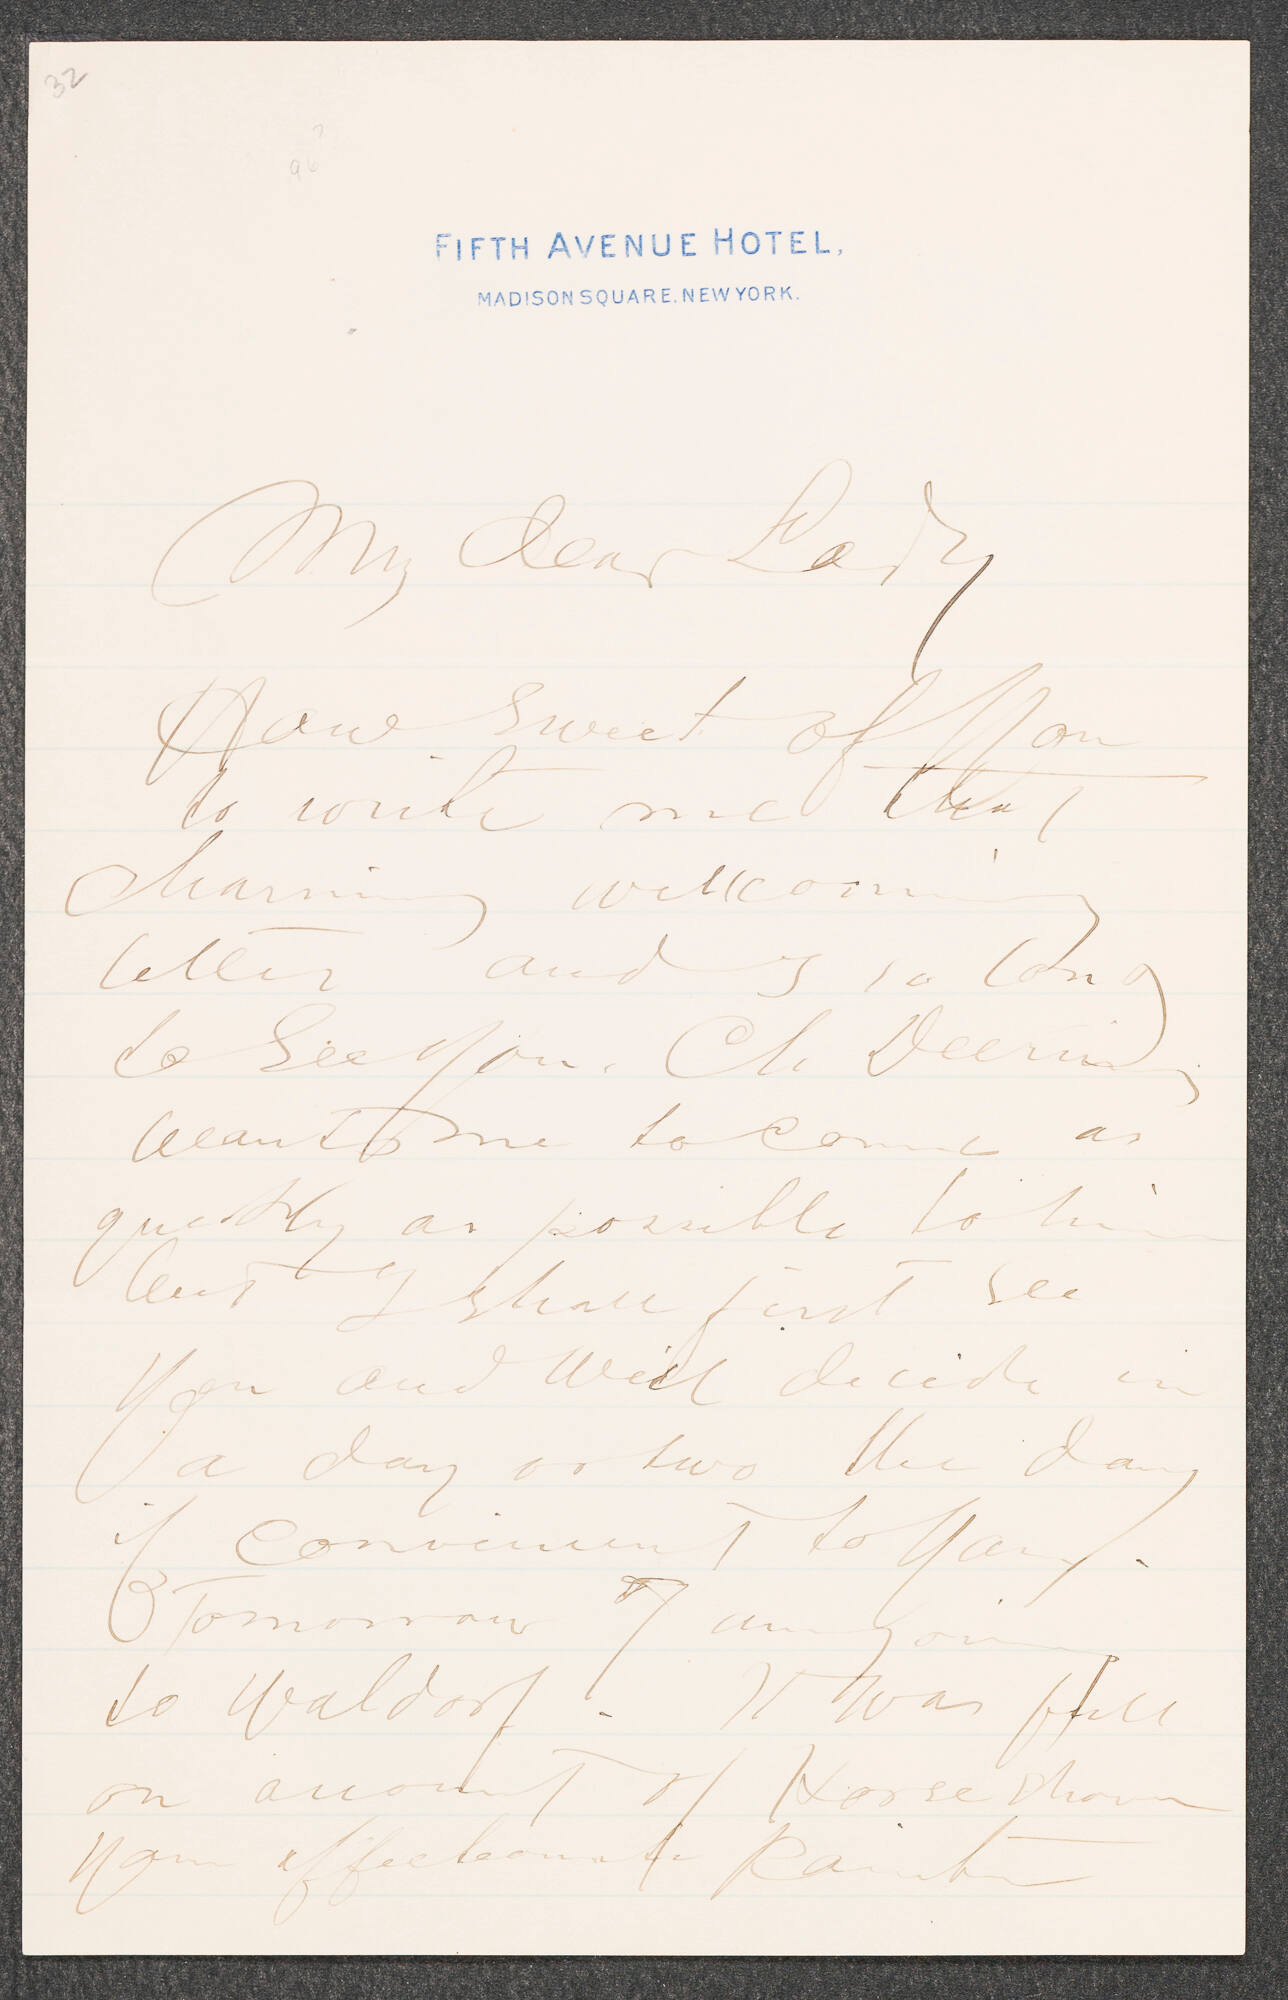 32
96
FIFTH AVENUE HOTEL,
MADISON SQUARE, NEW YORK.
My dear Lady
How sweet of you
to write me that
charming wellcoming
letter and I so long
to see you. Ch Deering
wants me to come as
quickly as possible to him
but I shall first see
you and will decide in
a day or two the day
if convenient to you.
Tomorrow I am going
to Waldorf. It was full
on account of Horse show
your affectionate Painter